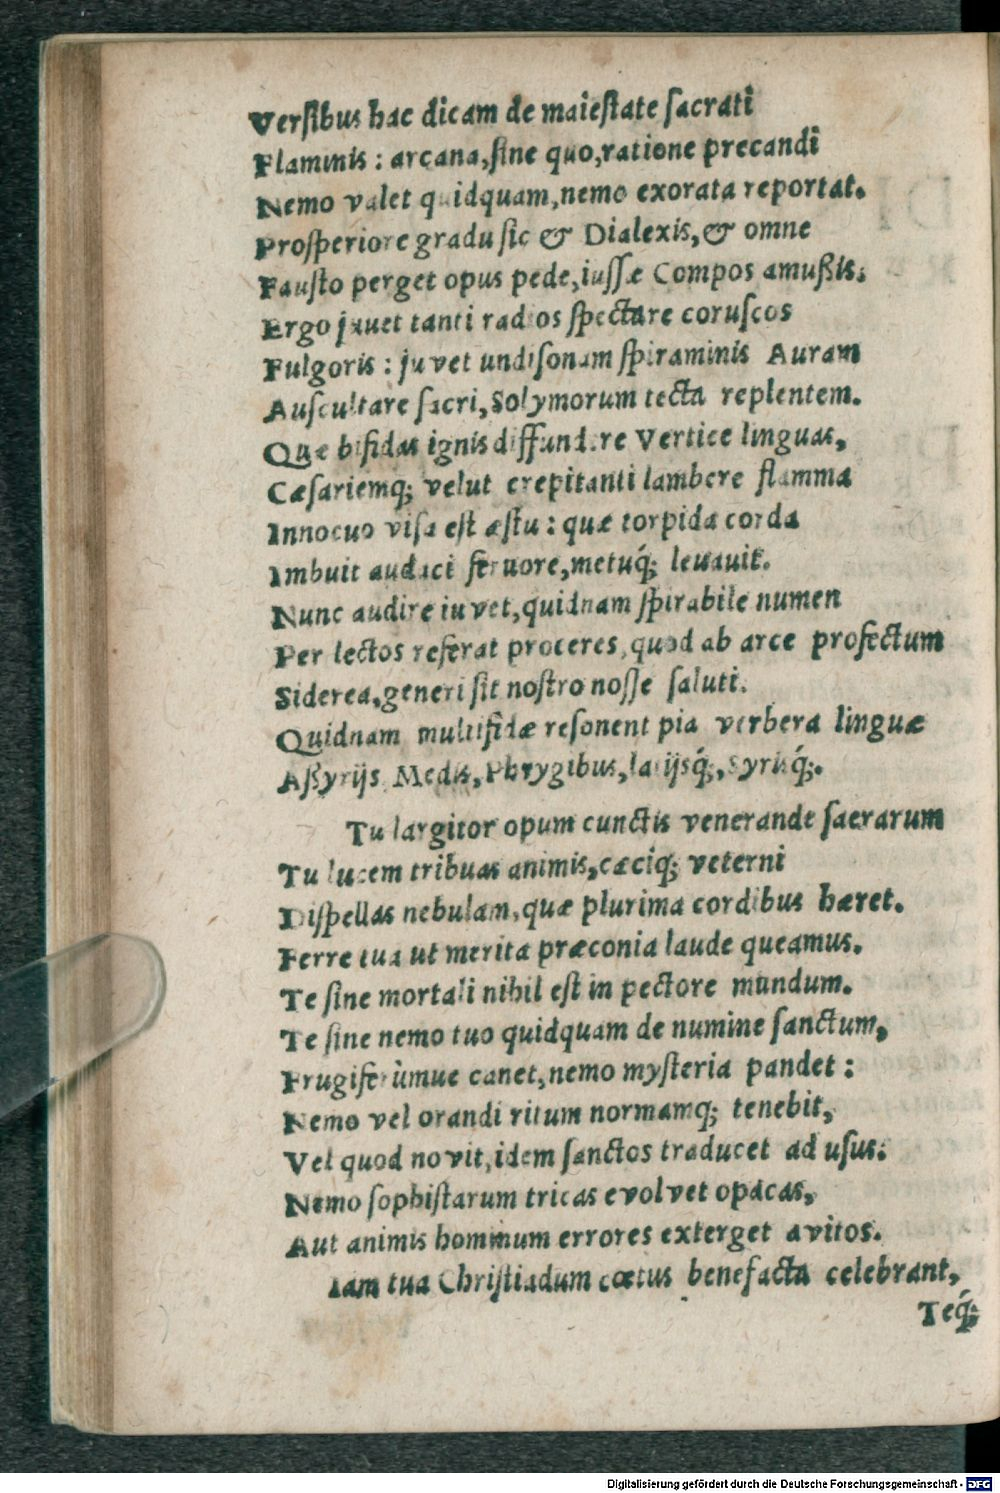 Versibus hac dicam de maiestate sacrati
Flaminis : arcana, sine quo, ratione precandi
Nemo valet quidquam, nemo exorata reportat.
Prosperiore gradu sic & Dialexis, & omne
Fausto perget opus pede, iussæ Compos amußis.
Ergo juvet tanti radios spectare coruscos
Fulgoris : juvet undisonam spiraminis Auram
Auscultare sacri, Solymorum tecta replentem.
Quæ bifidas ignis diffundere Vertice linguas,
Cæsariemq; velut crepitanti lambere flamma
Innocuo visa est æstu : quæ torpida corda
Imbuit audaci feruore, metuq́; leuauit.
Nunc audire iuvet, quidnam spirabile numen
Per lectos referat proceres, quod ab arce profectum
Siderea, generi sit nostro nosse saluti.
Quidnam multifidæ resonent pia verbera linguæ
Aßyrijs Medis, Phrygibus, latijsq́;, Syrisq́;.
Tu largitor opum cunctis venerande saerarum
Tu lucem tribuas animis, cæciq; veterni
Dispellas nebulam, quæ plurima cordibus hæret.
Ferre tua ut merita præconia laude queamus.
Te sine mortali nihil est in pectore mundum.
Te sine nemo tuo quidquam de numine sanctum,
Frugiferùmue canet, nemo mysteria pandet :
Nemo vel orandi ritum normamq; tenebit,
Vel quod novit, idem sanctos traducet ad usus:
Nemo sophistarum tricas evolvet opacas,
Aut animis hominum errores exterget avitos.
Iam tua Christiadum cœtus benefacta celebrant,
Teq́;
Digitalisierung gefördert durch die Deutsche Forschungsgemeinschaft - DFG